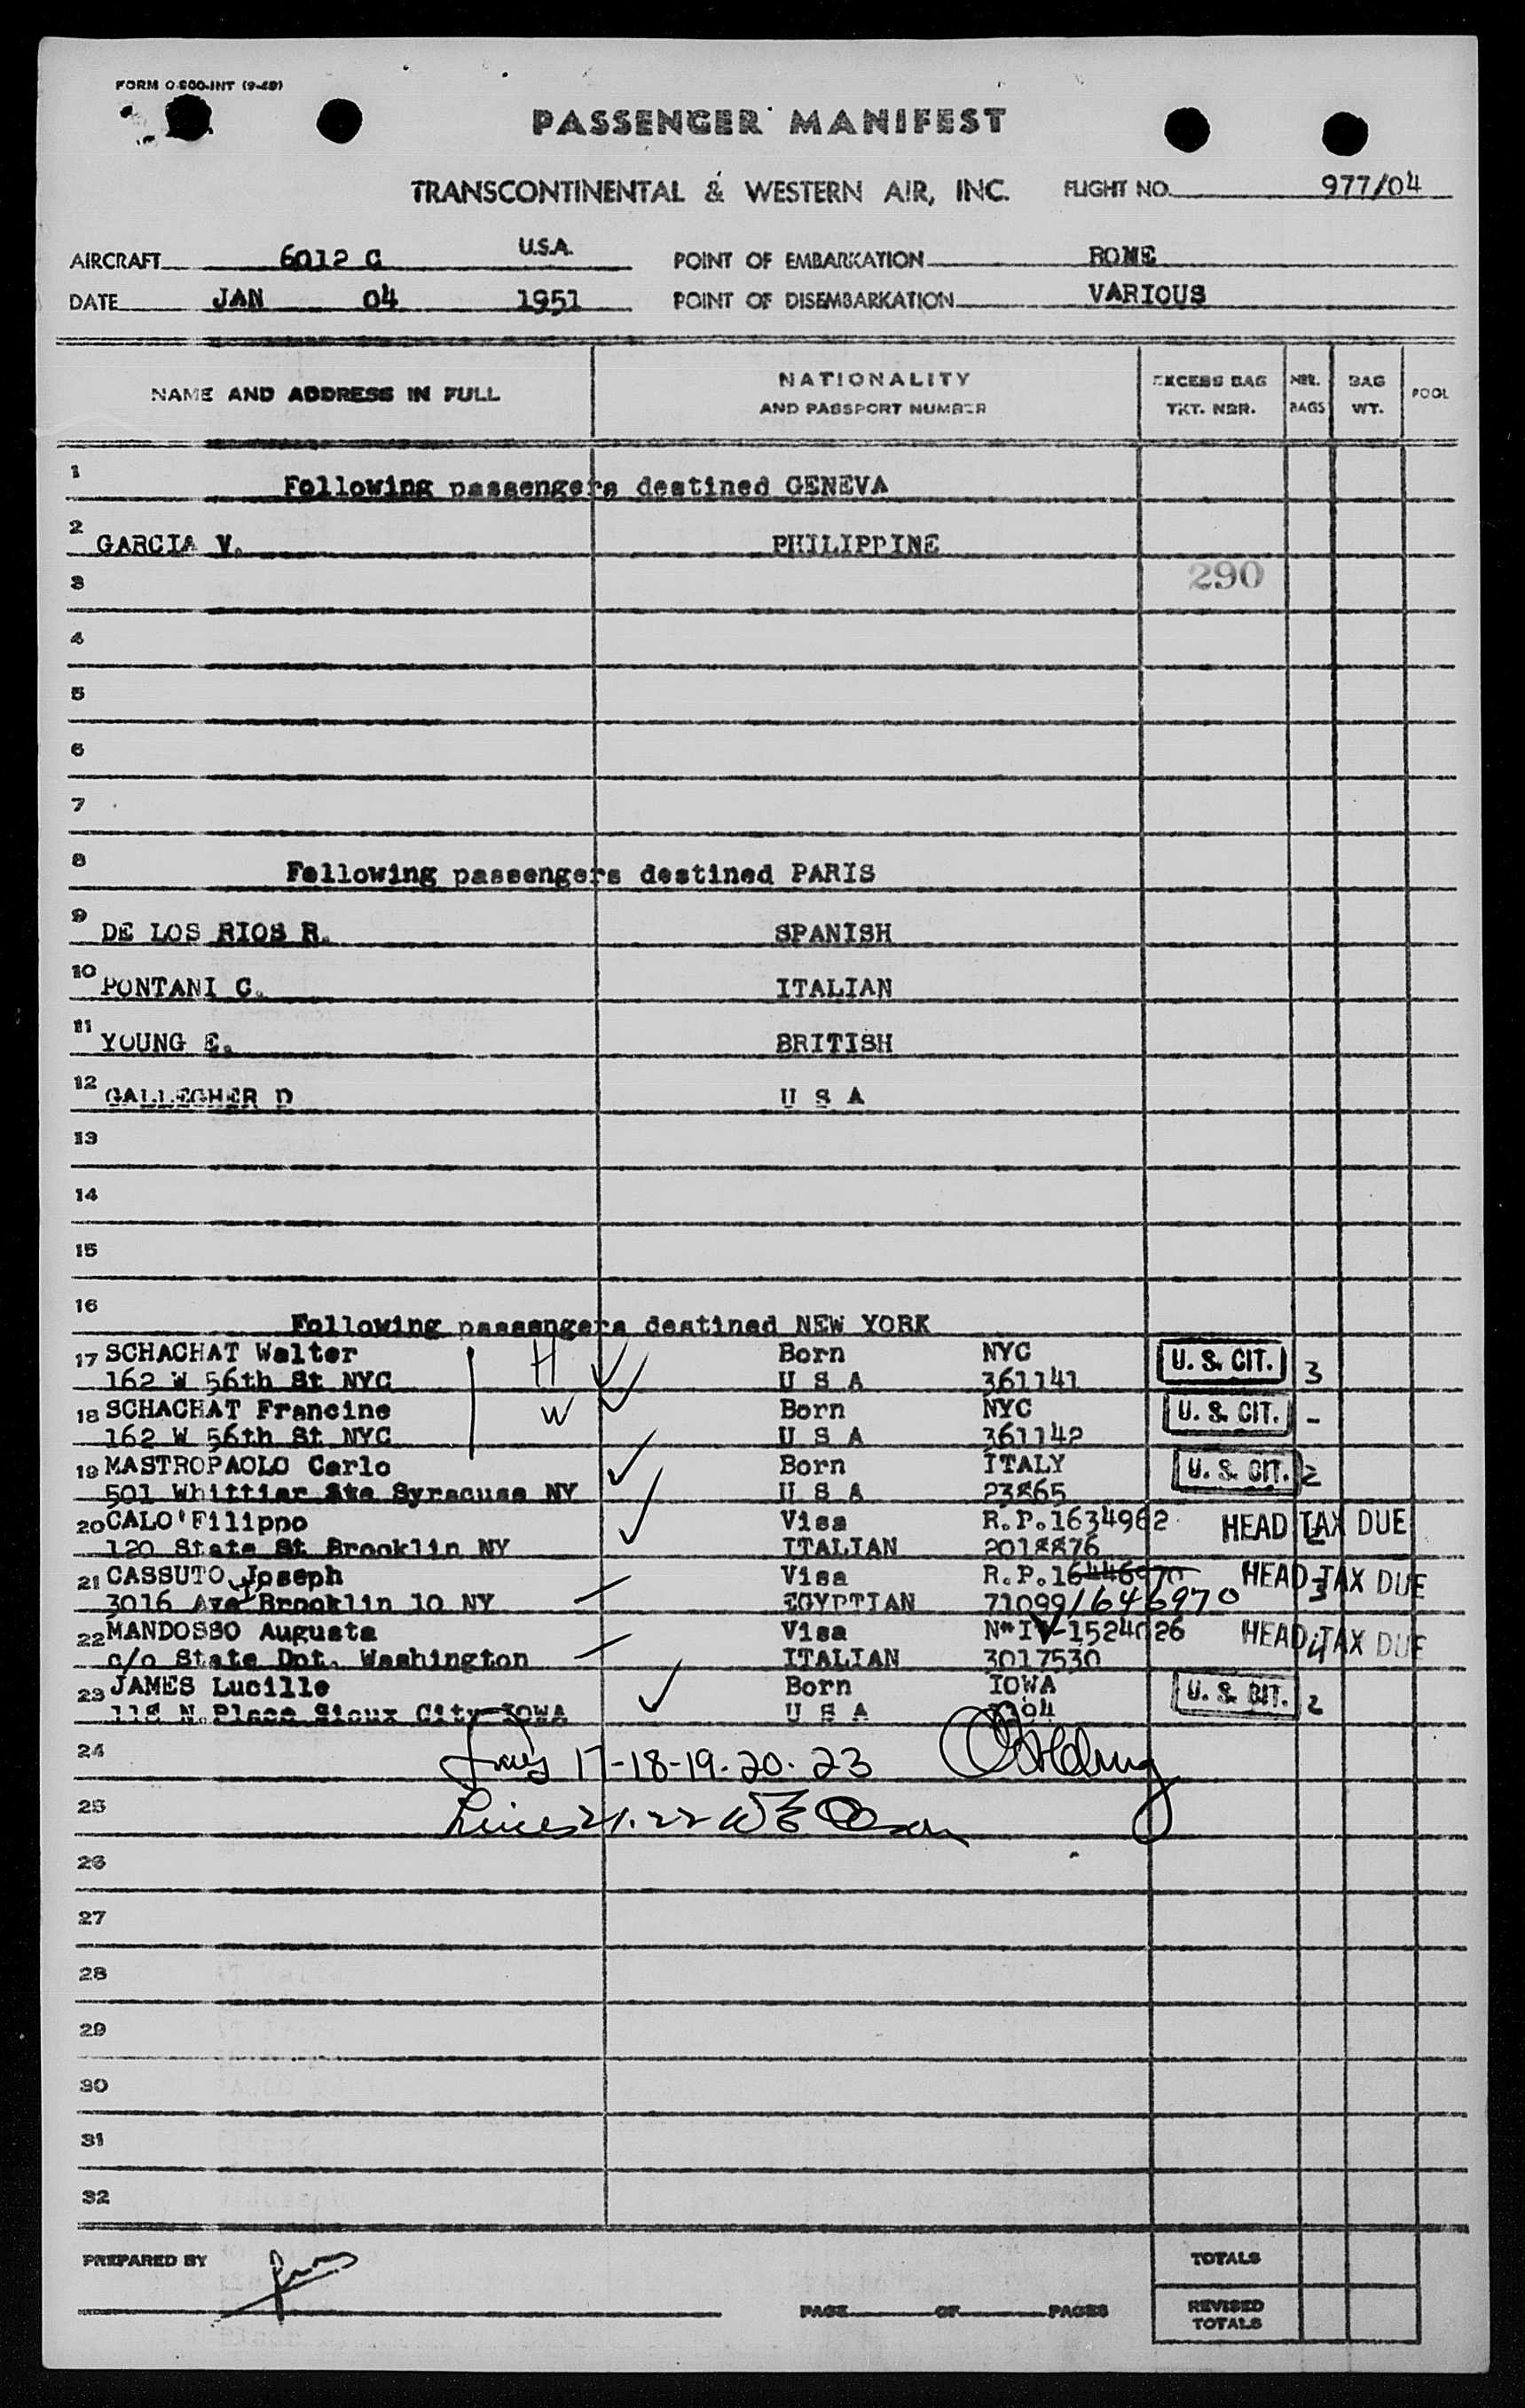 FORM O-800-INT (9-49)
PASSENGER MANIFEST
TRANSCONTINENTAL & WESTERN AIR, INC. FLIGHT NO. 977/04
AIRCRAFT 6012 C U.S.A. POINT OF EMBARKATION ROME
DATE JAN 04 1951 POINT OF DISEMBARKATION VARIOUS
NAME AND ADDRESS IN FULL NATIONALITY AND PASSPORT NUMBER EXCESS BAG TKT. NBR. NBR. BAGS BAG WT. POOL
1 Following passengers destined GENEVA
2 GARCIA V. PHILIPPINE
3 290
4
5
6
7
8 Following passengers destined PARIS
9 DE LOS RIOS R. SPANISH
10 PONTANI C. ITALIAN
11 YOUNG E. BRITISH
12 GALLEGHER D U S A
13
14
15
16 Following passengers destined NEW YORK
17 SCHACHAT Walter H Born NYC U. S. CIT. 3
162 W 56th St NYC U S A 361141
18 SCHACHAT Francine W Born NYC U. S. CIT. -
162 W 56th St NYC U S A 361142
19 MASTROPAOLO Carlo Born ITALY U. S. CIT. 2
501 Whittier Ste Syracuse NY U S A 23865
20 CALO' Filippo Visa R.P.1634962 HEAD TAX DUE
120 State St Brooklin NY ITALIAN 2018876
21 CASSUTO Joseph Visa R.P.16446970 HEAD TAX DUE 3
3016 Ave Brooklin 10 NY EGYPTIAN 71099 1646970
22 MANDOSSO Augusta Visa N° IV-1524026 HEAD TAX DUE 4
c/o State Dpt. Washington ITALIAN 3017530
23 JAMES Lucille Born IOWA U. S. CIT. 2
118 N. Place Sioux City IOWA U S A
24 17-18-19-20-23
25 Lines 21.22
26
27
28
29
30
31
32
PREPARED BY TOTALS
PAGE OF PAGES REVISED TOTALS